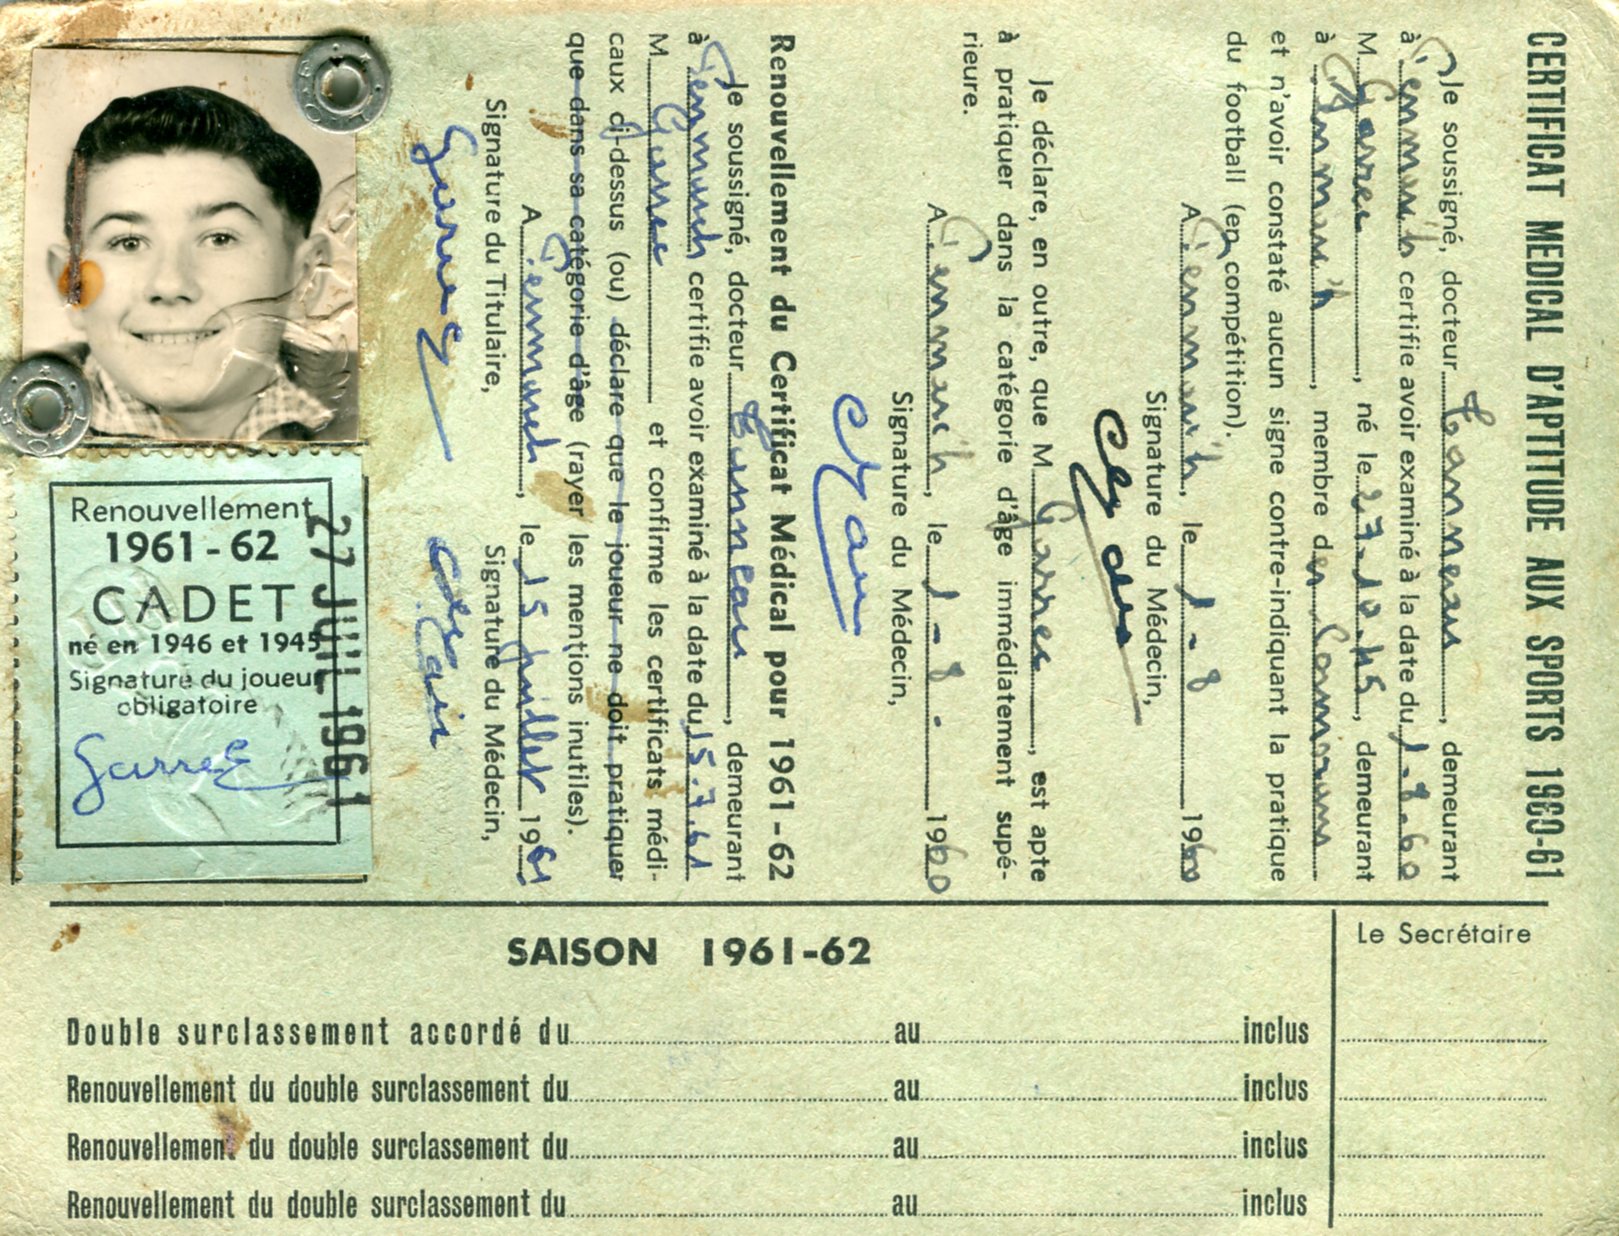 CERTIFICAT MEDICAL D'APTITUDE AUX SPORTS 1960-61
Je soussigné, docteur, demeurant
à certifie avoir examiné à la date du 1-8.60
M. Garrec, né le 27-10.45, demeurant
à, membre des
et n'avoir constaté aucun signe contre-indiquant la pratique
du football (en compétition).
A, le 1-8 1960
Signature du Médecin,
Je déclare, en outre, que M. Garrec, est apte
à pratiquer dans la catégorie d'âge immédiatement supé-
rieure.
A, le 1-8. 1960
Signature du Médecin,
Renouvellement du Certificat Médical pour 1961-62
Je soussigné, docteur, demeurant
à certifie avoir examiné à la date du 15.7.61
M. Garrec et confirme les certificats médi-
caux ci-dessus (ou) déclare que le joueur ne doit pratiquer
que dans sa catégorie d'âge (rayer les mentions inutiles).
A, le 15 juillet 1961
Signature du Titulaire, Signature du Médecin,
Garrec
Renouvellement
1961-62
CADET
né en 1946 et 1945
Signature du joueur
obligatoire
Garrec
27 JUIL 1961
SAISON 1961-62
Le Secrétaire
Double surclassement accordé du au inclus
Renouvellement du double surclassement du au inclus
Renouvellement du double surclassement du au inclus
Renouvellement du double surclassement du au inclus